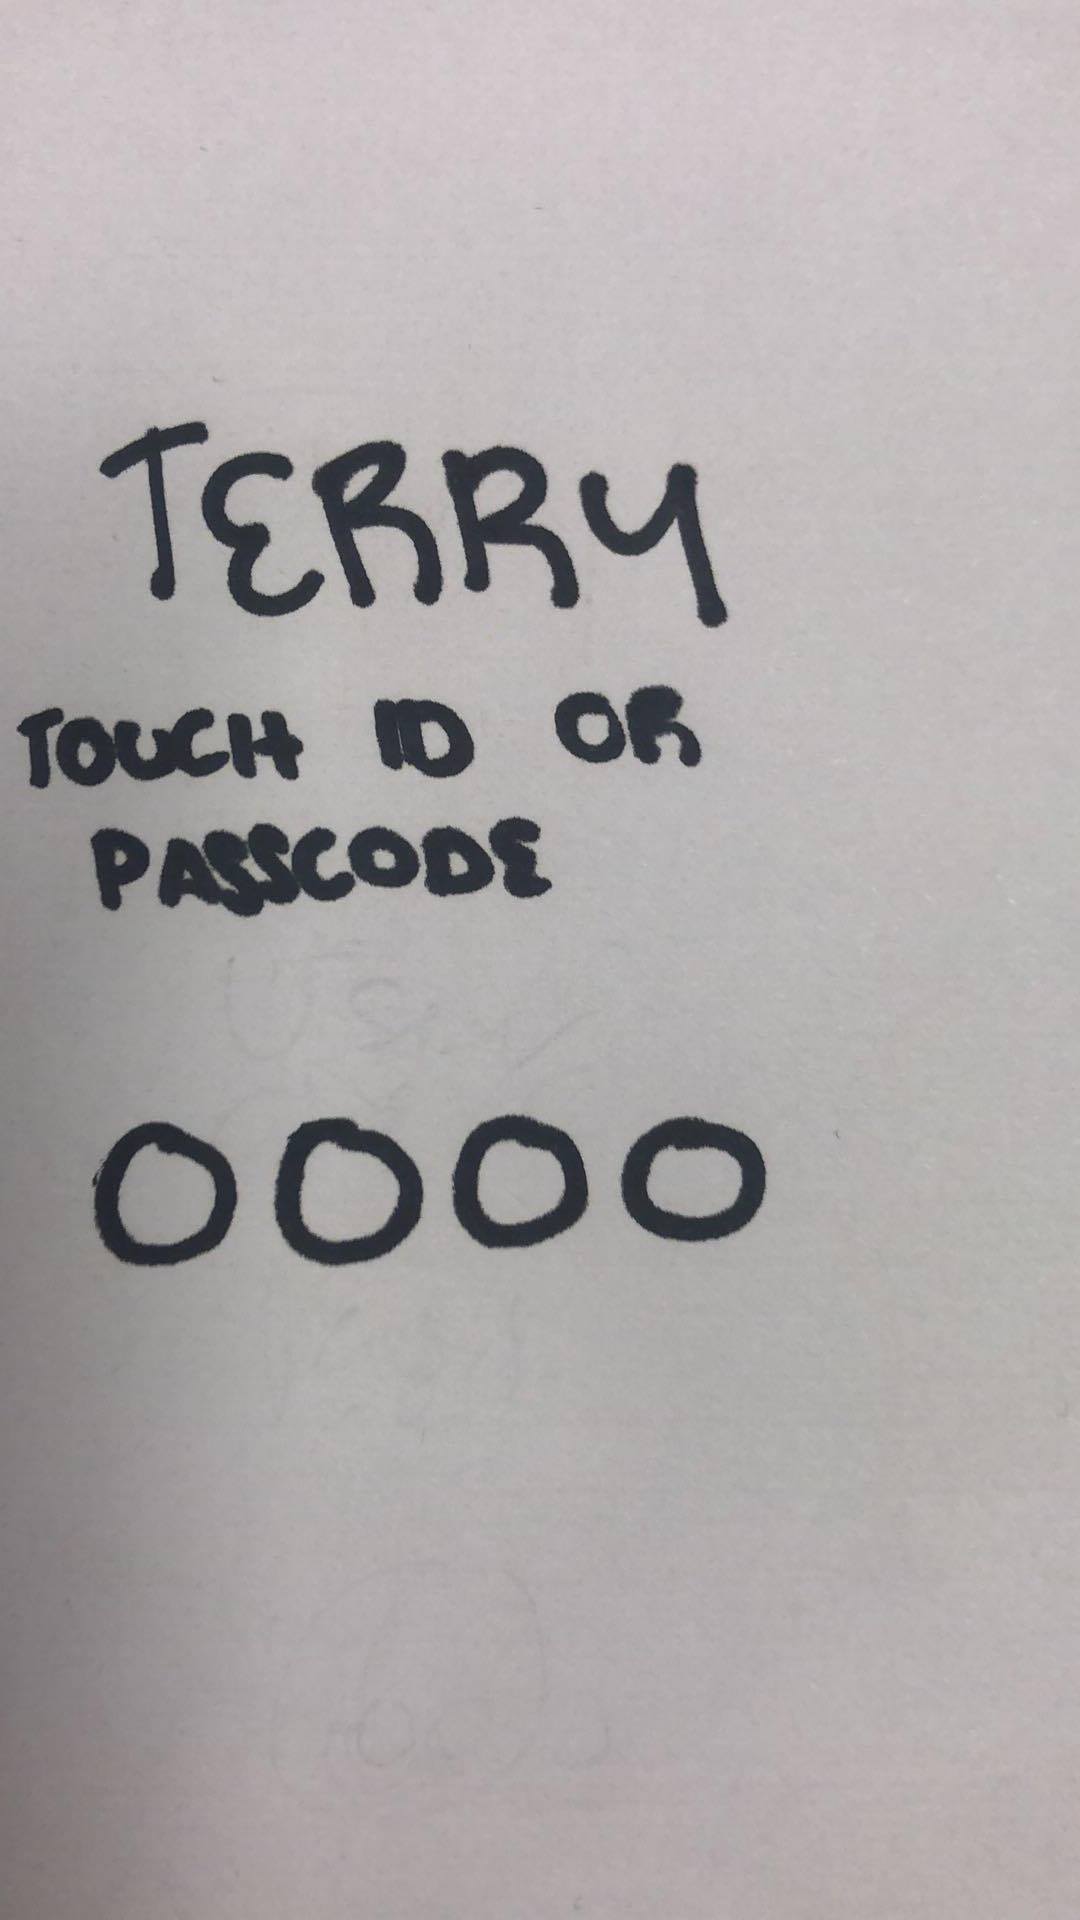 TERRY
TOUCH ID OR
PASSCODE
OOOO